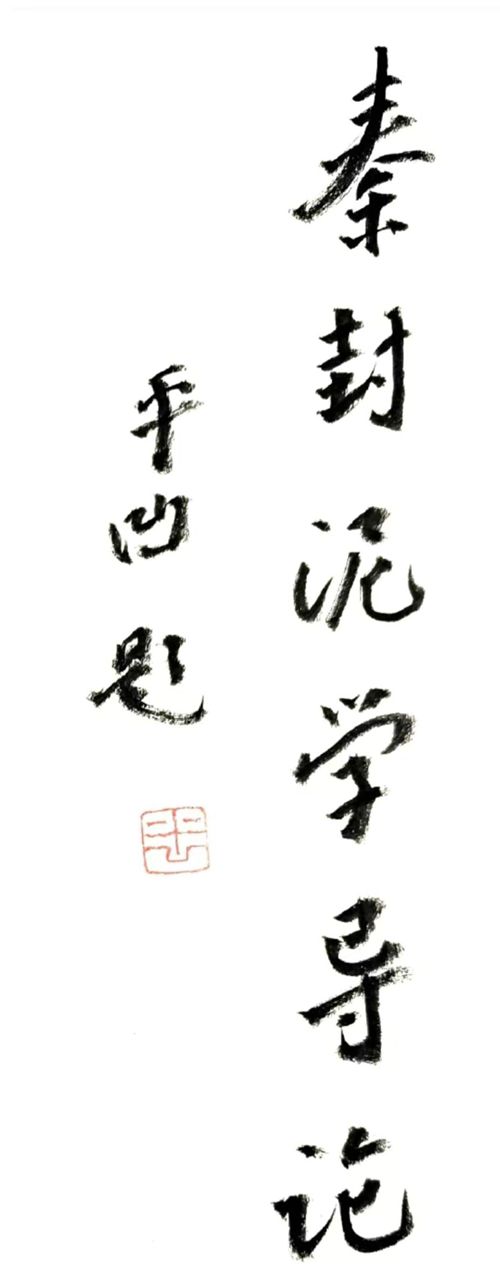 秦封泥学导论
平凹题
平凹